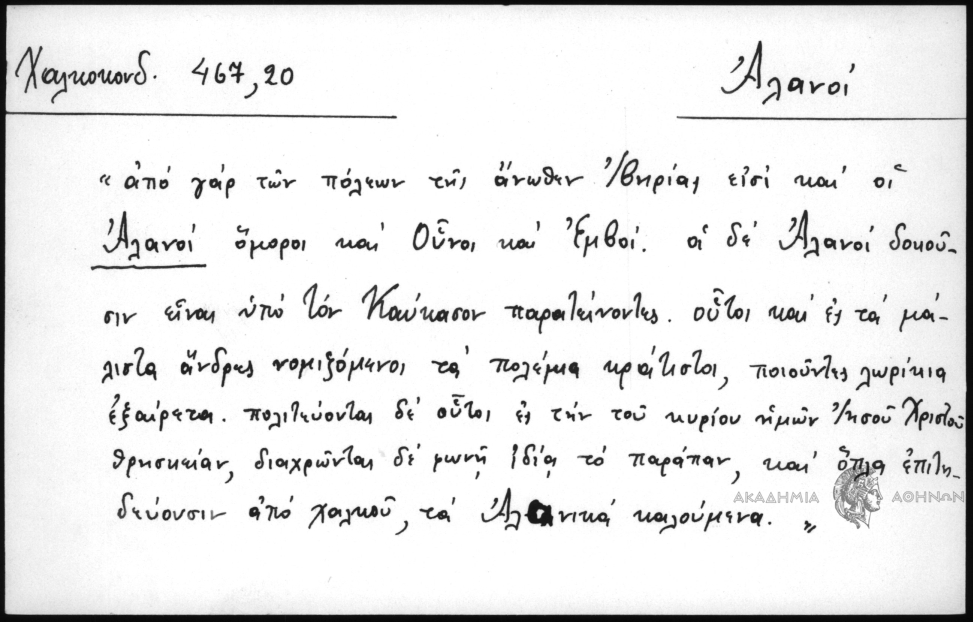 Χαλκοκονδ. 467,20
Ἀλανοί
“ἀπό γάρ τῶν πόλεων τῆς ἄνωθεν Ἰβηρίας εἰσί καί οἱ
Ἀλανοί ὅμοροι καί Οὗνοι καί Ἐμβοί. οἱ δέ Ἀλανοί δοκοῦ-
σιν εἶναι ὑπό τόν Καύκασον παρατείνοντες. οὗτοι καί ἐς τά μά-
λιστα ἄνδρες νομιζόμενοι τά πολέμια κράτιστοι, ποιοῦντες λωρίκια
ἐξαίρετα. πολιτεύονται δέ οὗτοι ἐς τήν τοῦ κυρίου ἡμῶν Ἰησοῦ Χριστοῦ
θρησκείαν, διαχρῶνται δέ φωνῇ ἰδίᾳ τό παράπαν, καί ὅπλα ἐπιτη-
δεύουσιν ἀπό χαλκοῦ, τά Ἀλανικά καλούμενα.”
ΑΚΑΔΗΜΙΑ ΑΘΗΝΩΝ